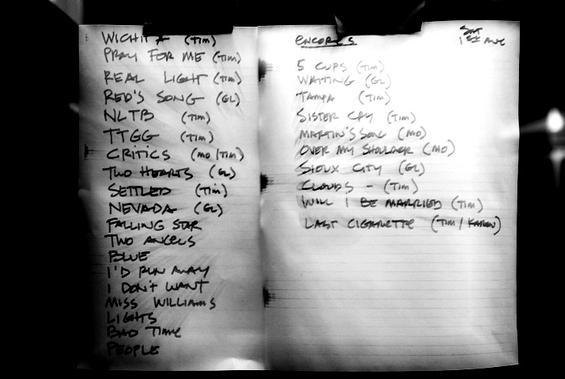 WICHITA (TIM)
PRAY FOR ME (TIM)
REAL LIGHT (TIM)
RED'S SONG (GL)
NLTB (TIM)
TTGG (TIM)
CRITICS (MO/TIM)
TWO HEARTS (GL)
SETTLED (TIM)
NEVADA (GL)
FALLING STAR
TWO ANGELS
BLUE
I'D RUN AWAY
I DON'T WANT
MISS WILLIAMS
LIGHTS
BAD TIME
PEOPLE
ENCORES
SAT
1ST AVE
5 CUPS (TIM)
WAITING (GL)
TAMPA (TIM)
SISTER CRY (TIM)
MARTIN'S SONG (MO)
OVER MY SHOULDER (MO)
SIOUX CITY (GL)
CLOUDS - (TIM)
WILL I BE MARRIED (TIM)
LAST CIGARETTE (TIM/KAREN)